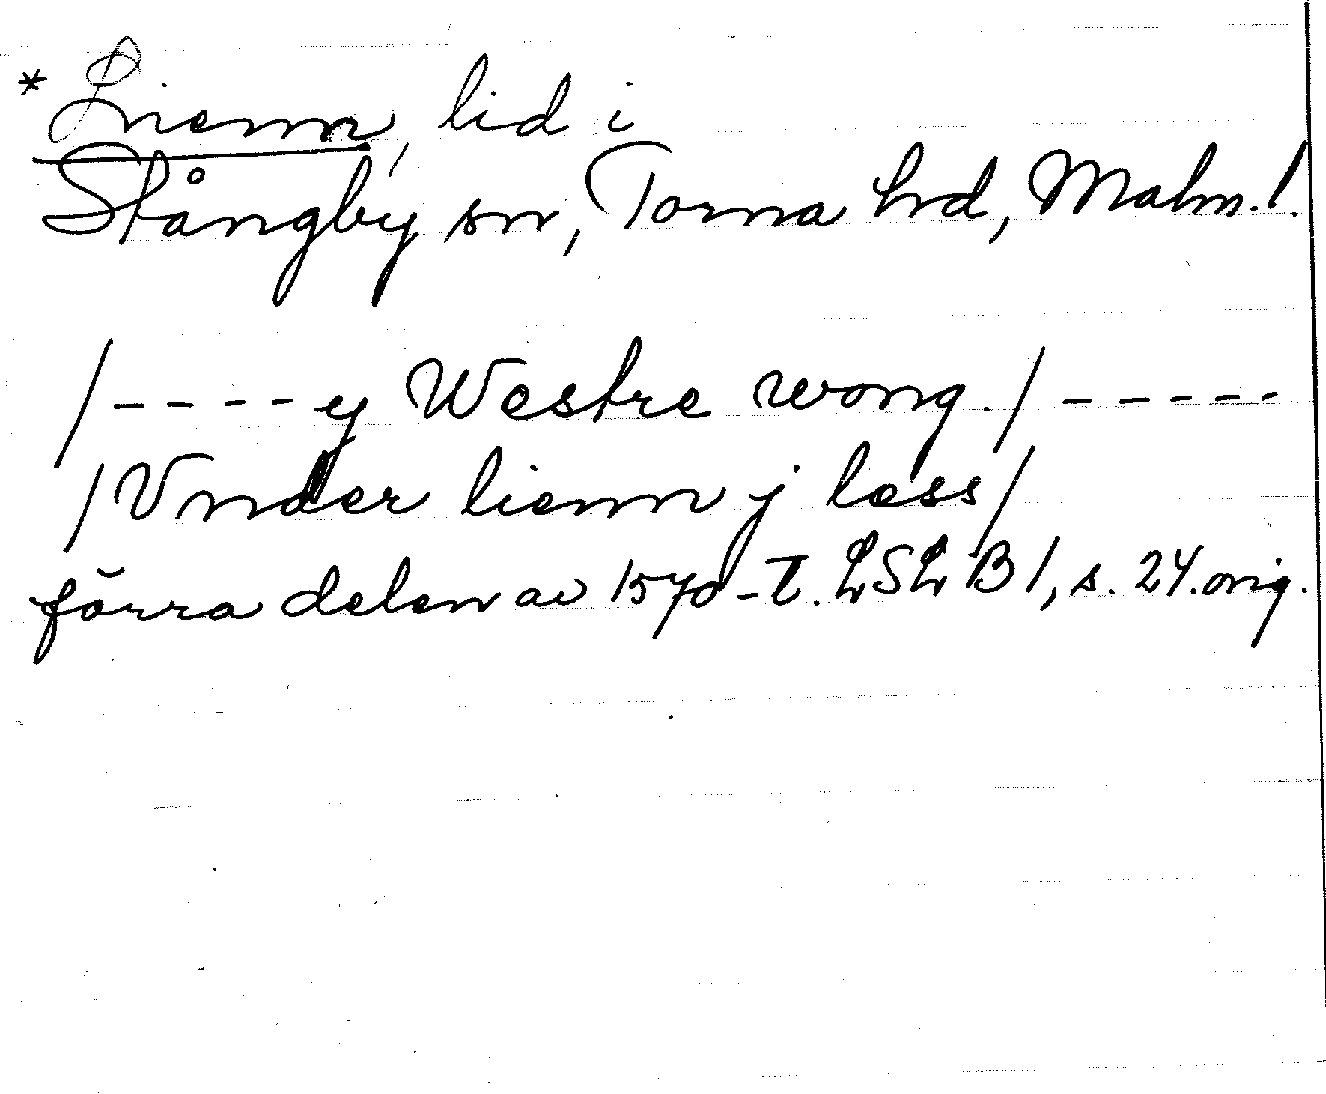 * Lienn, lid i
Stångby sn, Torna hrd, Malm. l.
/ - - - - y Westre wong. / - - - - -
/ Vnder lienn j læss /
förra delen av 1570-t. LSLB 1, s. 24. orig.